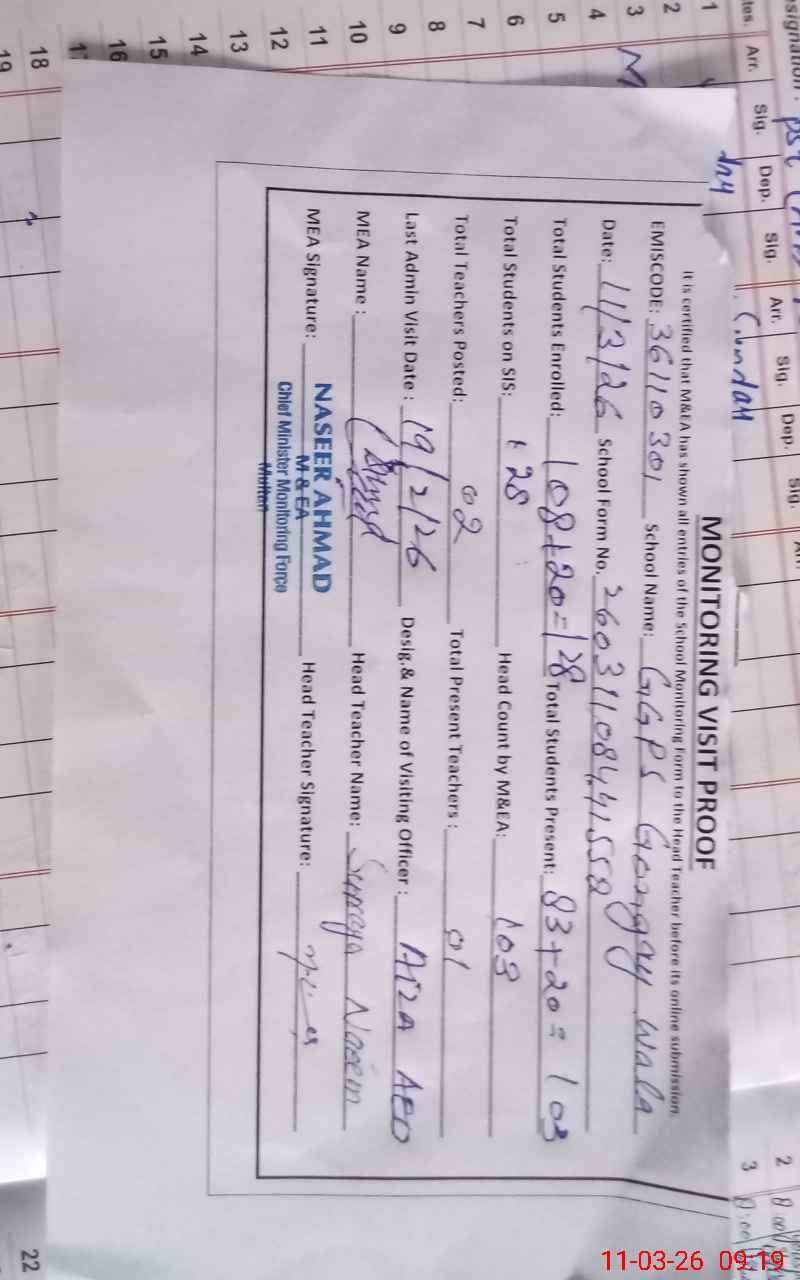 MONITORING VISIT PROOF
It is certified that M&EA has shown all entries of the School Monitoring Form to the Head Teacher before its online submission.
EMISCODE: 36110301 School Name: GGPS Gongay Wala
Date: 11/3/26 School Form No. 26031108441558
Total Students Enrolled: 108+20=128 Total Students Present: 83+20=103
Total Students on SIS: 128 Head Count by M&EA: 103
Total Teachers Posted: 02 Total Present Teachers: 01
Last Admin Visit Date: 19/2/26 Desig.& Name of Visiting Officer: AEO
MEA Name: Head Teacher Name: Naeem
MEA Signature: Head Teacher Signature:
NASEER AHMAD
M & EA
Chief Minister Monitoring Force
Multan
Arr. Sig. Dep. Sig. Arr. Sig. Dep. Sig.
1
2
3
4
5
6
7
8
9
10
11
12
13
14
15
16
18
19
2
3
22
11-03-26 09:19